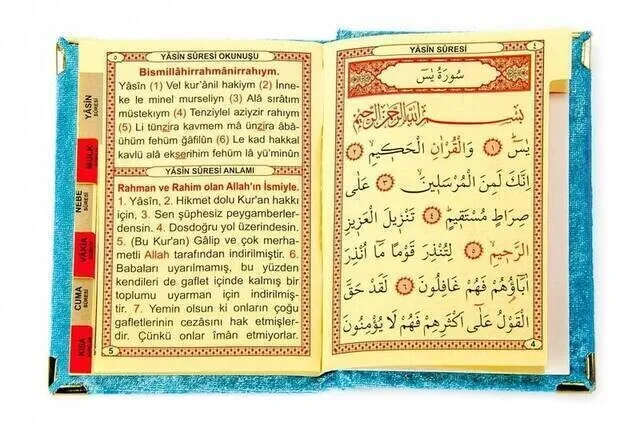 ٥
YÂSÎN SÛRESİ OKUNUŞU
Bismillâhirrahmânirrahıym.
Yâsîn (1) Vel kur'ânil hakiym (2) İnne-
ke le minel murseliyn (3) Alâ sırâtım
müstekıym (4) Tenziylel aziyzir rahıym
(5) Li tünzira kavmem mâ ünzira âbâ-
ühüm fehüm ğâfilûn (6) Le kad hakkal
kavlü alâ ekserihim fehüm lâ yü'minûn
YÂSÎN SÛRESİ ANLAMI
Rahman ve Rahim olan Allah'ın İsmiyle.
1. Yâsîn, 2. Hikmet dolu Kur'an hakkı
için, 3. Sen şüphesiz peygamberler-
densin. 4. Dosdoğru yol üzerindesin.
5. (Bu Kur'an) Gâlip ve çok merha-
metli Allah tarafından indirilmiştir. 6.
Babaları uyarılmamış, bu yüzden
kendileri de gaflet içinde kalmış bir
toplumu uyarman için indirilmiş-
tir. 7. Yemin olsun ki onların çoğu
gafletlerinin cezasını hak etmişler-
dir. Çünkü onlar îmân etmiyorlar.
5
YÂSÎN
SÛRESİ
MÜLK
NEBE
SÛRESİ
VÂKIA
CUMA
SÛRESİ
KISA
YÂSÎN SÛRESİ
٤
سُورَةُ يٰسٓ
بِسْمِ اللّٰهِ الرَّحْمٰنِ الرَّحِيمِ
يٰسٓ ﴿١﴾ وَالْقُرْاٰنِ الْحَكِيمِ ﴿٢﴾
اِنَّكَ لَمِنَ الْمُرْسَلِينَ ﴿٣﴾ عَلٰى
صِرَاطٍ مُسْتَقِيمٍ ﴿٤﴾ تَنْزِيلَ الْعَزِيزِ
الرَّحِيمِ ﴿٥﴾ لِتُنْذِرَ قَوْمًا مَٓا اُنْذِرَ
اٰبَٓاؤُ۬هُمْ فَهُمْ غَافِلُونَ ﴿٦﴾ لَقَدْ حَقَّ
الْقَوْلُ عَلٰٓى اَكْثَرِهِمْ فَهُمْ لَا يُؤْمِنُونَ
4